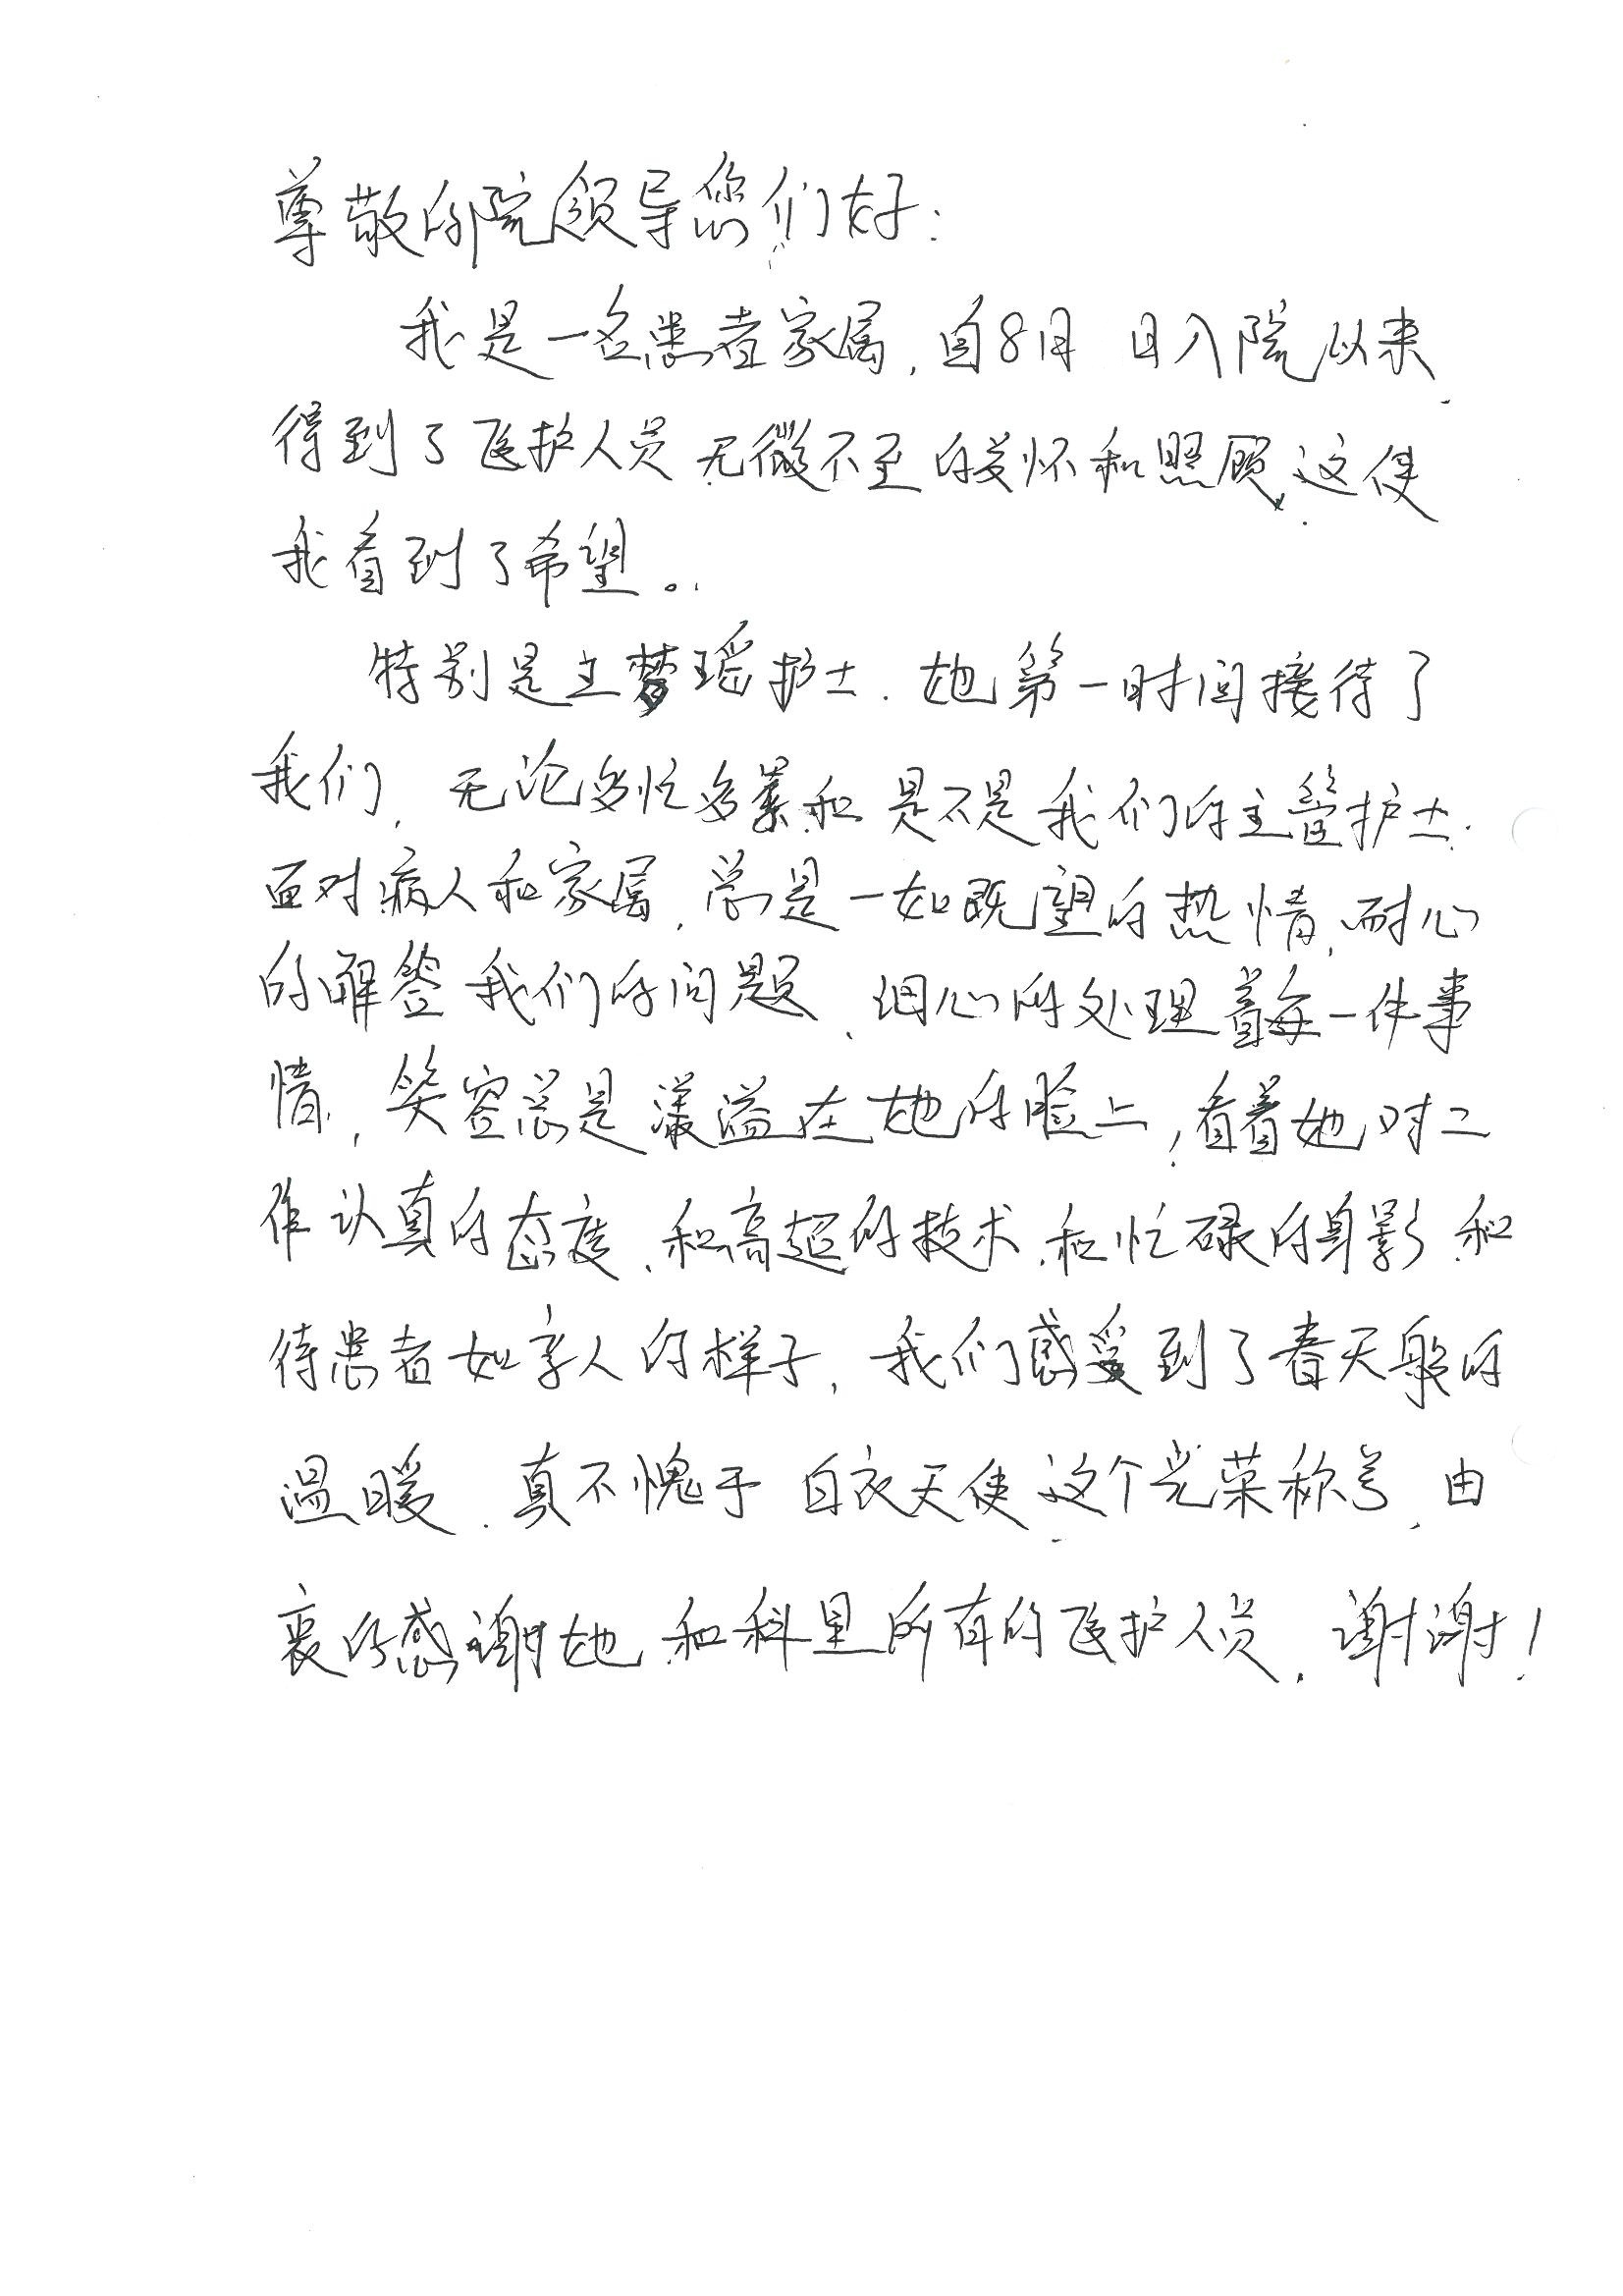 尊敬的院领导您们好:
我是一名患者家属,自8月 日入院以来,
得到了医护人员无微不至的关怀和照顾,这使
我看到了希望。
特别是王梦瑶护士.她第一时间接待了
我们,无论多忙多累,和是不是我们的主管护士.
面对病人和家属,总是一如既望的热情,耐心
的解答我们的问题、细心的处理着每一件事
情,笑容总是漾溢在她的脸上,看着她对工
作认真的态度、和高超的技术、和忙碌的身影、和
待患者如亲人的样子,我们感受到了春天般的
温暖.真不愧于白衣天使这个光荣称号,由
衷的感谢她和科里所有的医护人员.谢谢!